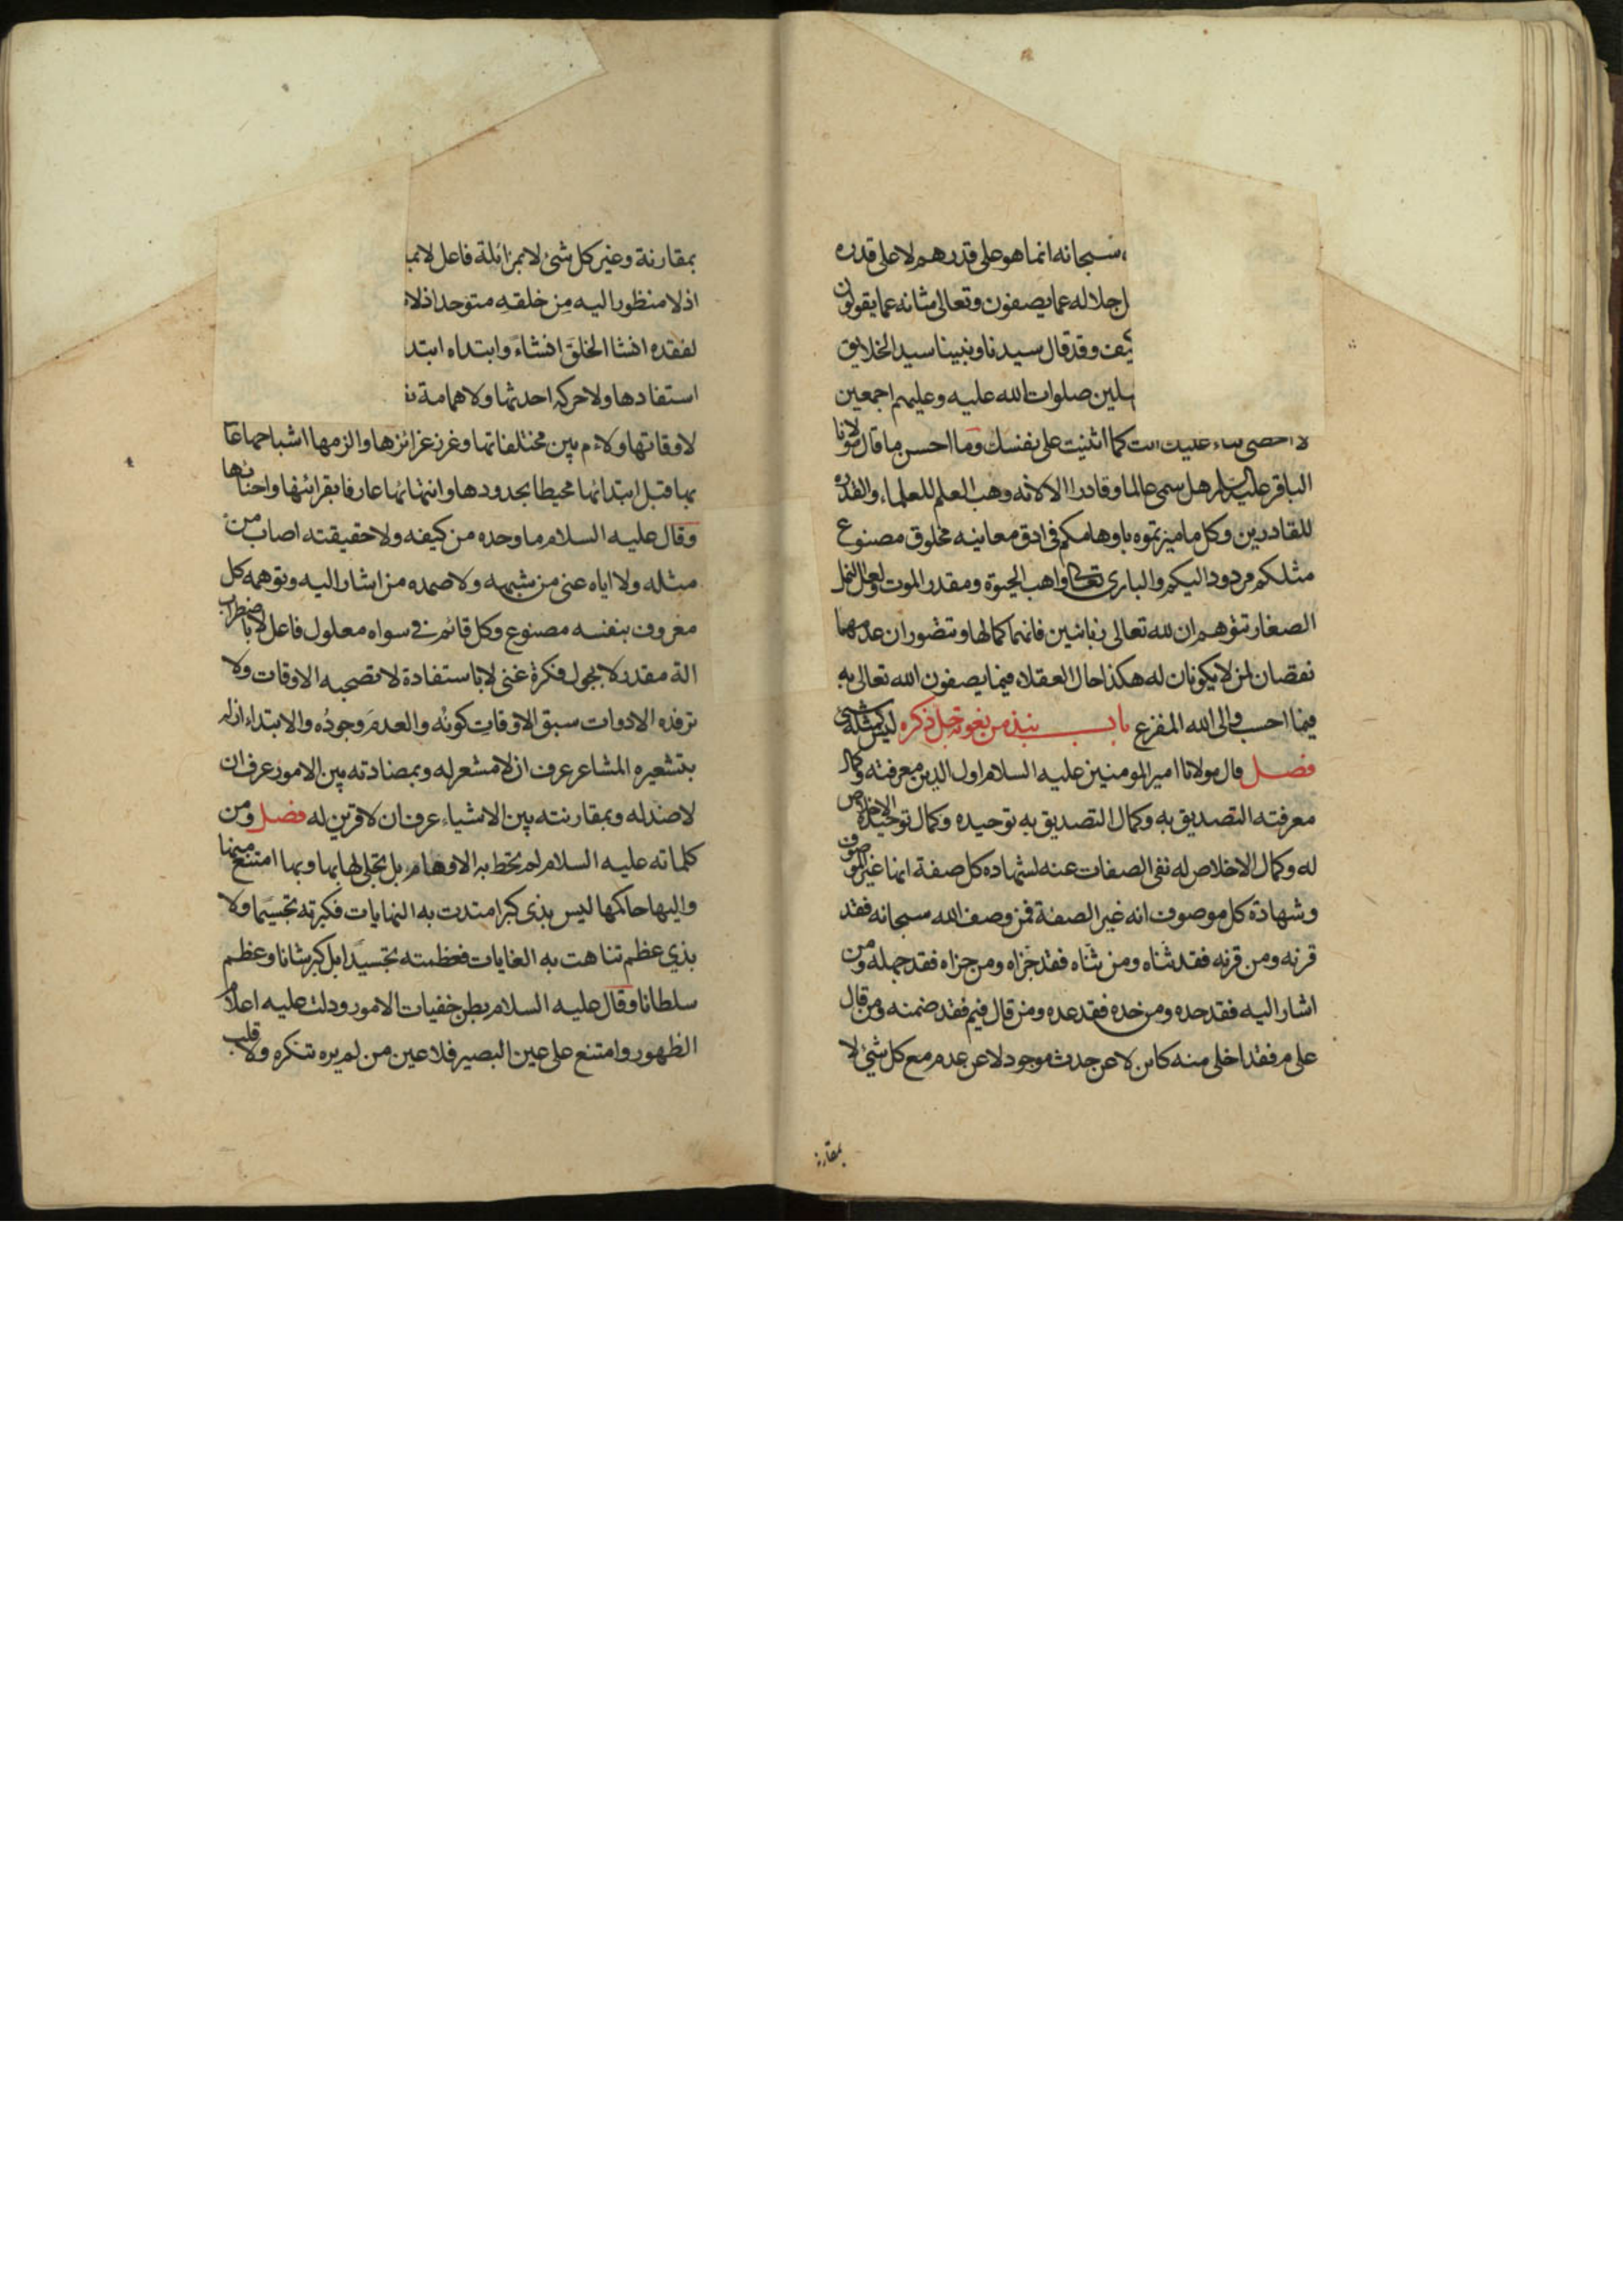 سبحانه انما هو على قدرهم لا على قدره
اجلاله عما يصفون وتعالى شانه عما يقولون
وقد قال سيدنا ونبينا سيد الخلايق
صلوات الله عليه وعليهم اجمعين
لا احصى ثناء عليك انت كما اثنيت على نفسك وما احسن ما قال مولانا
الباقر عليه السلام هل سمى عالما وقادرا الا لانه وهب العلم للعلماء والقدره
للقادرين وكل ما ميزتموه باوهامكم فى ادق معانيه مخلوق مصنوع
مثلكم مردود اليكم والبارى تعالى واهب الحيوة ومقدر الموت ولعل النمل
الصغار تتوهم ان لله تعالى زبانيين فانهما كمالها وتتصور ان عدمهما
نقصان لمن لا يكونان له هكذا حال العقلاء فيما يصفون الله تعالى به
فيما احسب والى الله المفزع باب نبذ من نعوته جل ذكره ليس كمثله شئ
فصل قال مولانا امير المومنين عليه السلام اول الدين معرفته وكمال
معرفته التصديق به وكمال التصديق به توحيده وكمال توحيده الاخلاص
له وكمال الاخلاص له نفى الصفات عنه لشهاده كل صفة انها غير الموصوف
وشهادة كل موصوف انه غير الصفة فمن وصف الله سبحانه فقد
قرنه ومن قرنه فقد ثناه ومن ثناه فقد جزاه ومن جزاه فقد جهله ومن
اشار اليه فقد حده ومن حده فقد عده ومن قال فيم فقد ضمنه ومن قال
على م فقد اخلى منه كاين لا عن حدث موجود لا عن عدم مع كل شئ لا
بمقارنة
بمقارنة وغير كل شئ لا بمزائلة فاعل لا
اذ لا منظور اليه من خلقه متوحد اذ لا
لفقده انشا الخلق انشاء وابتداه
استفادها ولا حركة احدثها ولا همامة
لاوقاتها ولاءم بين مختلفاتها وغرز غرائزها والزمها اشباحها عالما
بها قبل ابتدائها محيطا بحدودها وانتهائها عارفا بقرائنها واحنائها
وقال عليه السلام ما وحده من كيفه ولا حقيقته اصاب من
مثله ولا اياه عنى من شبهه ولا صمده من اشار اليه وتوهمه كل
معروف بنفسه مصنوع وكل قائم فى سواه معلول فاعل لا باضطراب
الة مقدر لا بجول فكرة غنى لا باستفادة لا تصحبه الاوقات ولا
ترفده الادوات سبق الاوقات كونه والعدم وجوده والابتداء ازله
بتشعيره المشاعر عرف ان لا مشعر له وبمضادته بين الامور عرف ان
لا ضد له وبمقارنته بين الاشياء عرف ان لا قرين له فصل ومن
كلماته عليه السلام لم تحط به الاوهام بل تجلى لها بها وبها امتنع منها
واليها حاكمها ليس بذى كبر امتدت به النهايات فكبرته تجسيما ولا
بذي عظم تناهت به الغايات فعظمته تجسيدا بل كبر شانا وعظم
سلطانا وقال عليه السلام بطن خفيات الامور ودلت عليه اعلام
الظهور وامتنع على عين البصير فلا عين من لم يره تنكره ولا قلب